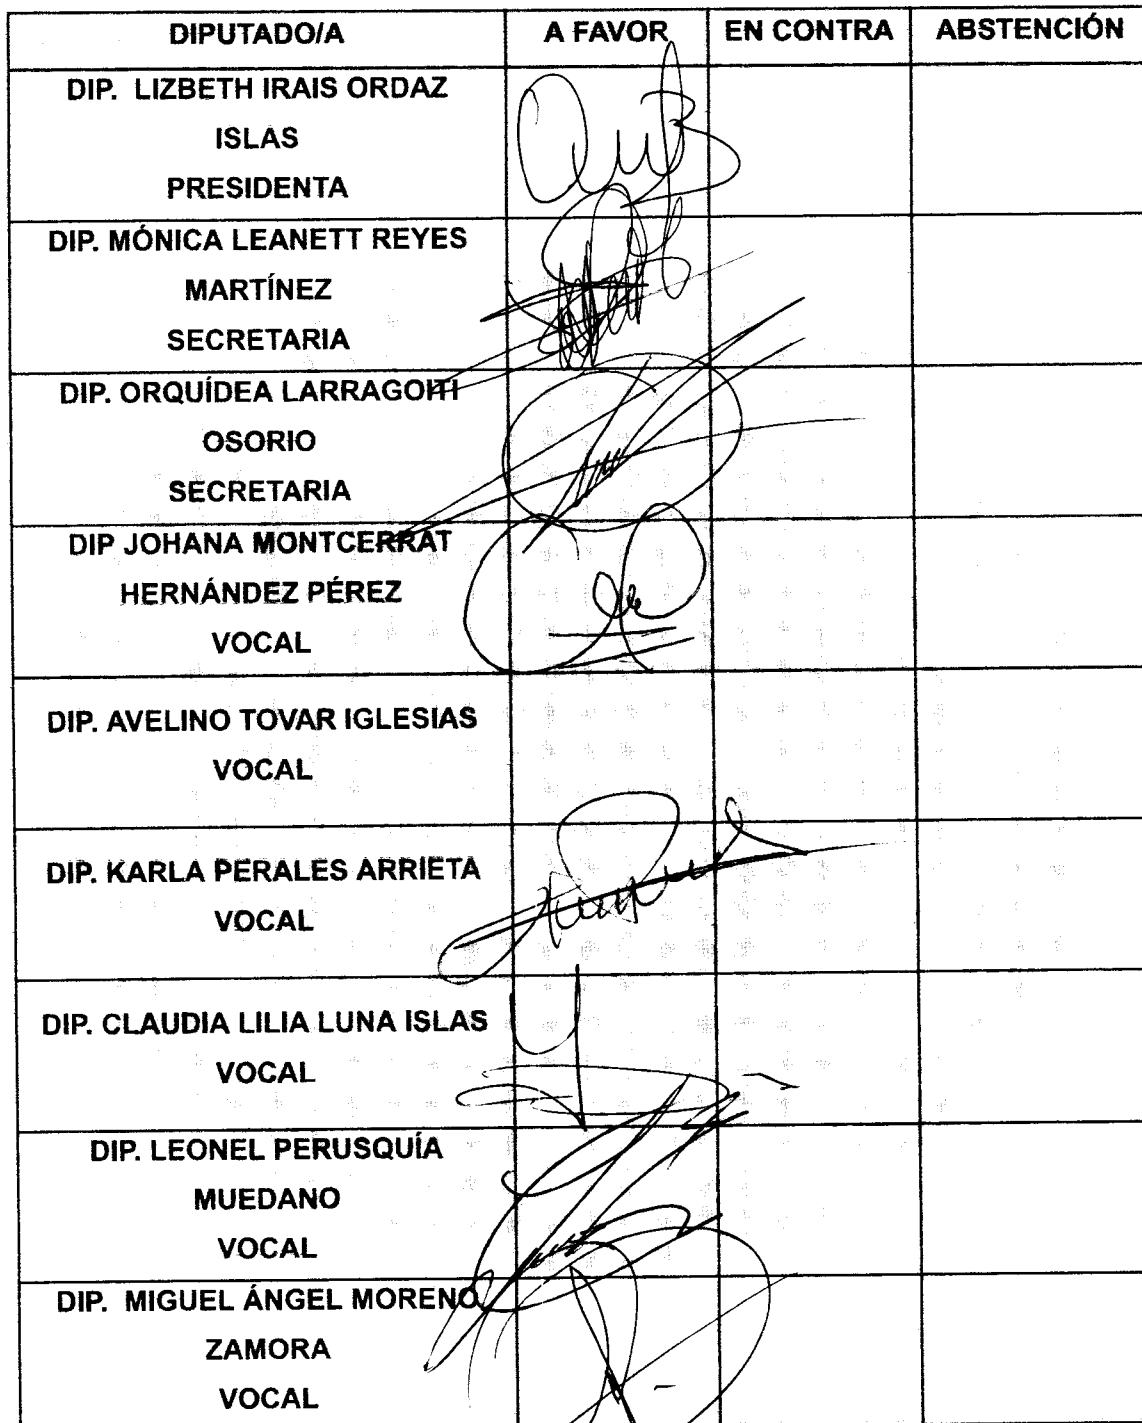 DIPUTADO/A A FAVOR EN CONTRA ABSTENCIÓN
DIP. LIZBETH IRAIS ORDAZ
ISLAS
PRESIDENTA
DIP. MÓNICA LEANETT REYES
MARTÍNEZ
SECRETARIA
DIP. ORQUÍDEA LARRAGOITI
OSORIO
SECRETARIA
DIP JOHANA MONTCERRAT
HERNÁNDEZ PÉREZ
VOCAL
DIP. AVELINO TOVAR IGLESIAS
VOCAL
DIP. KARLA PERALES ARRIETA
VOCAL
DIP. CLAUDIA LILIA LUNA ISLAS
VOCAL
DIP. LEONEL PERUSQUÍA
MUEDANO
VOCAL
DIP. MIGUEL ÁNGEL MORENO
ZAMORA
VOCAL